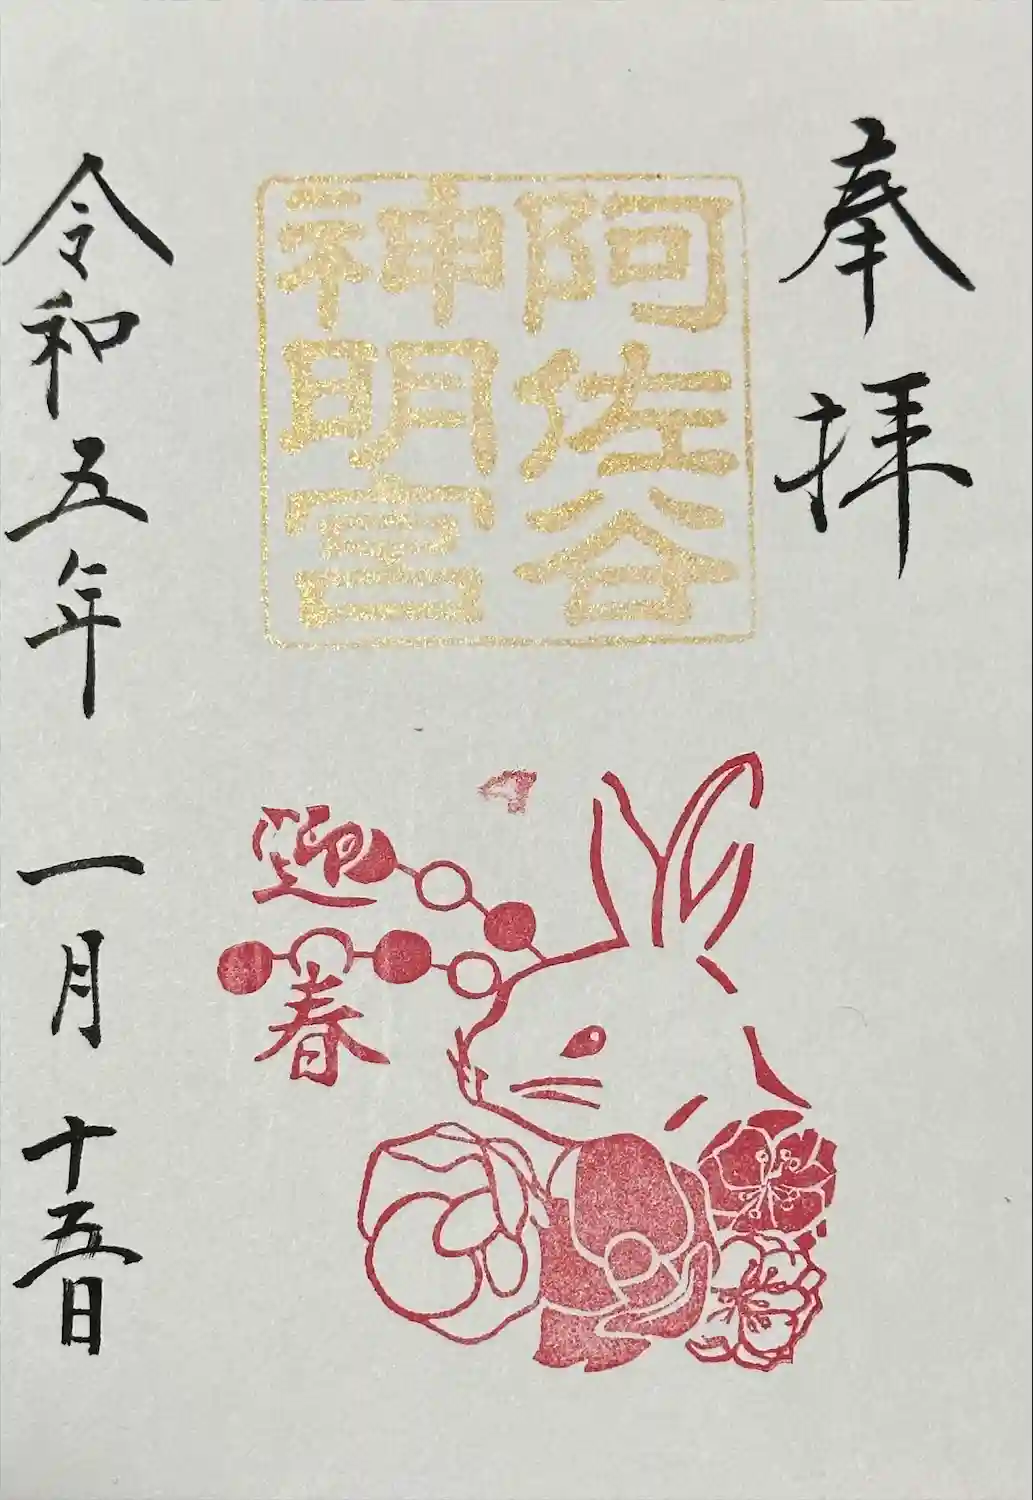 奉拝
阿佐谷
神明宮
迎春
令和五年一月十五日